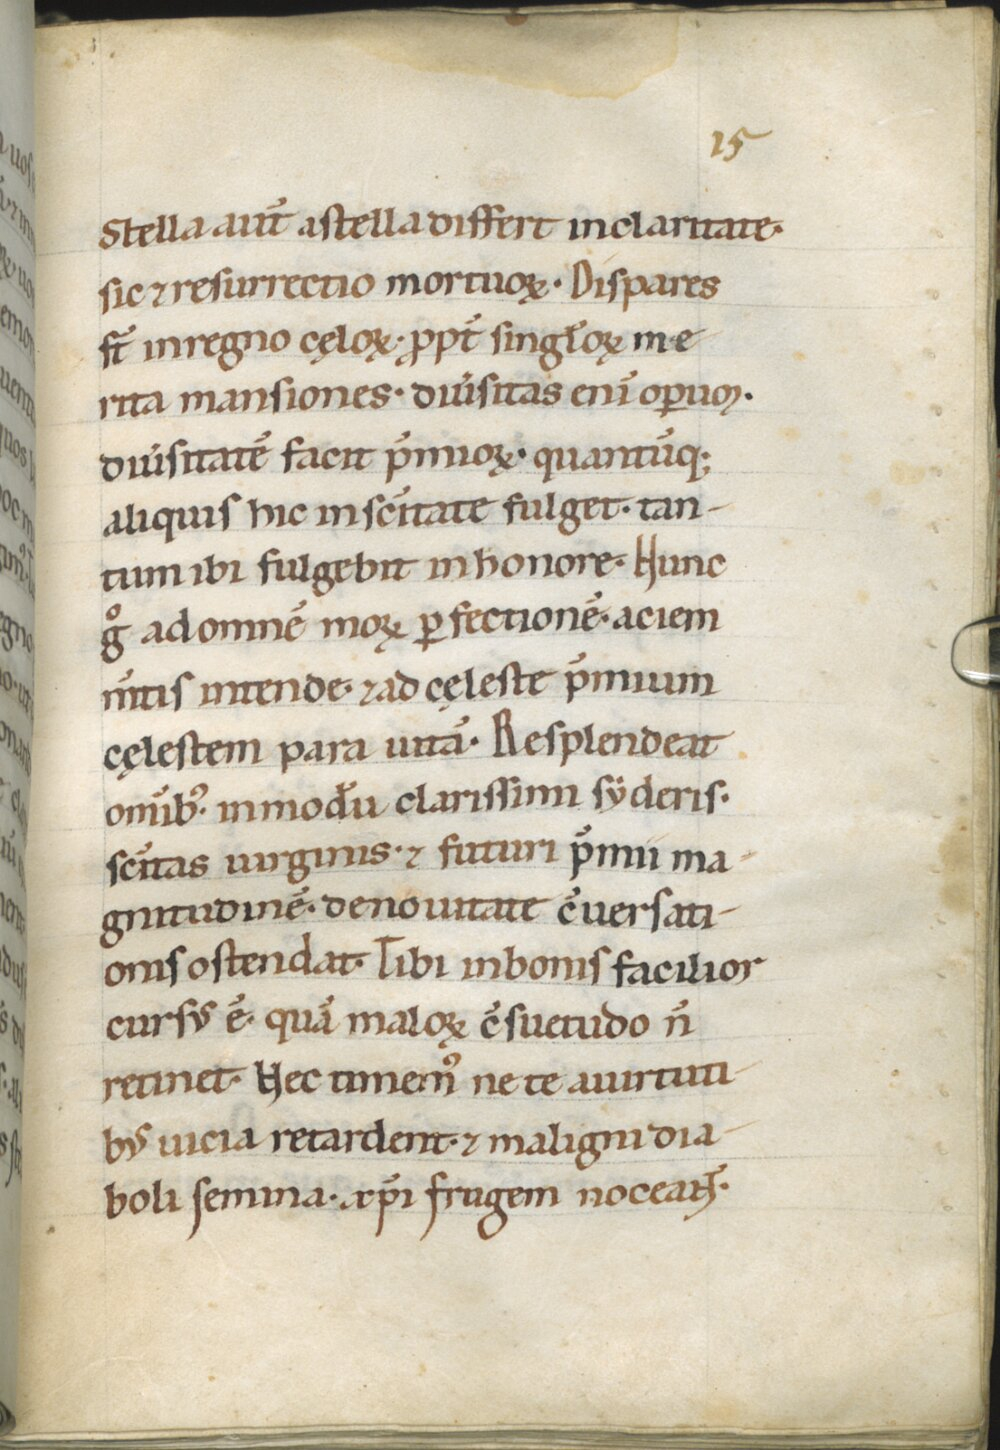 15
Stella aut̄ a stella differt in claritate·
sic ⁊ resurrectio mortuoꝝ· Dispares
st̄ in regno cęloꝝ· ꝓpt̄ singl̄oꝝ me-
rita mansiones· diu̾sitas eni̅ oꝑuꝫ·
diu̾sitatē facit p̄mioꝝ· quantu̅q;
aliquis hic in sc̄itate fulget· tan-
tum ibi fulgebit in honore· Hunc
gͦ ad omnē moꝝ ꝑfectionē· aciem
m̄tis intende· ⁊ ad cęleste p̄mium
cęlestem para uitā· Resplendeat
omīb᾿· in modu̅ clarissimi syderis·
sc̄itas uirginis· ⁊ futuri p̄mii ma-
gnitudinē· de nouitate c̄uersati-
onis ostendat· Tibi in bonis facilior
cursus ē· quā maloꝝ c̄suetudo n̄
retinet· Hec timem᾿ ne te a uirtuti-
bus uicia retardent· ⁊ maligni dia-
boli semina· xp̄i frugem noceant̄·